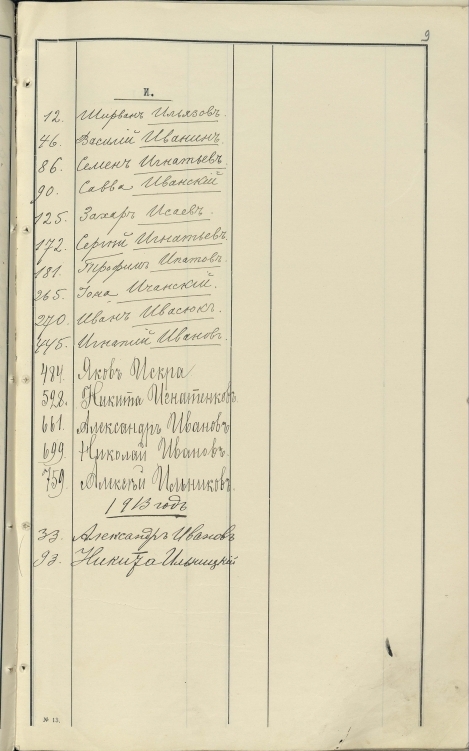 9
И.
12. Ширванъ Ильязовъ.
46. Василій Иванинъ.
86. Семенъ Игнатьевъ.
90. Савва Иванскій
125. Захаръ Исаевъ.
172. Сергѣй Игнатьевъ.
181. Трофимъ Ипатовъ.
265. Іона Ичанскій.
270. Иванъ Ивасюкъ.
445. Игнатій Ивановъ.
484. Яковъ Искра
592. Никита Игнатенковъ.
661. Александръ Ивановъ
699. Николай Ивановъ.
759. Алексѣй Ильниковъ.
1913 годъ
33. Александръ Ивановъ
93. Никита Ильницкій
№ 13.